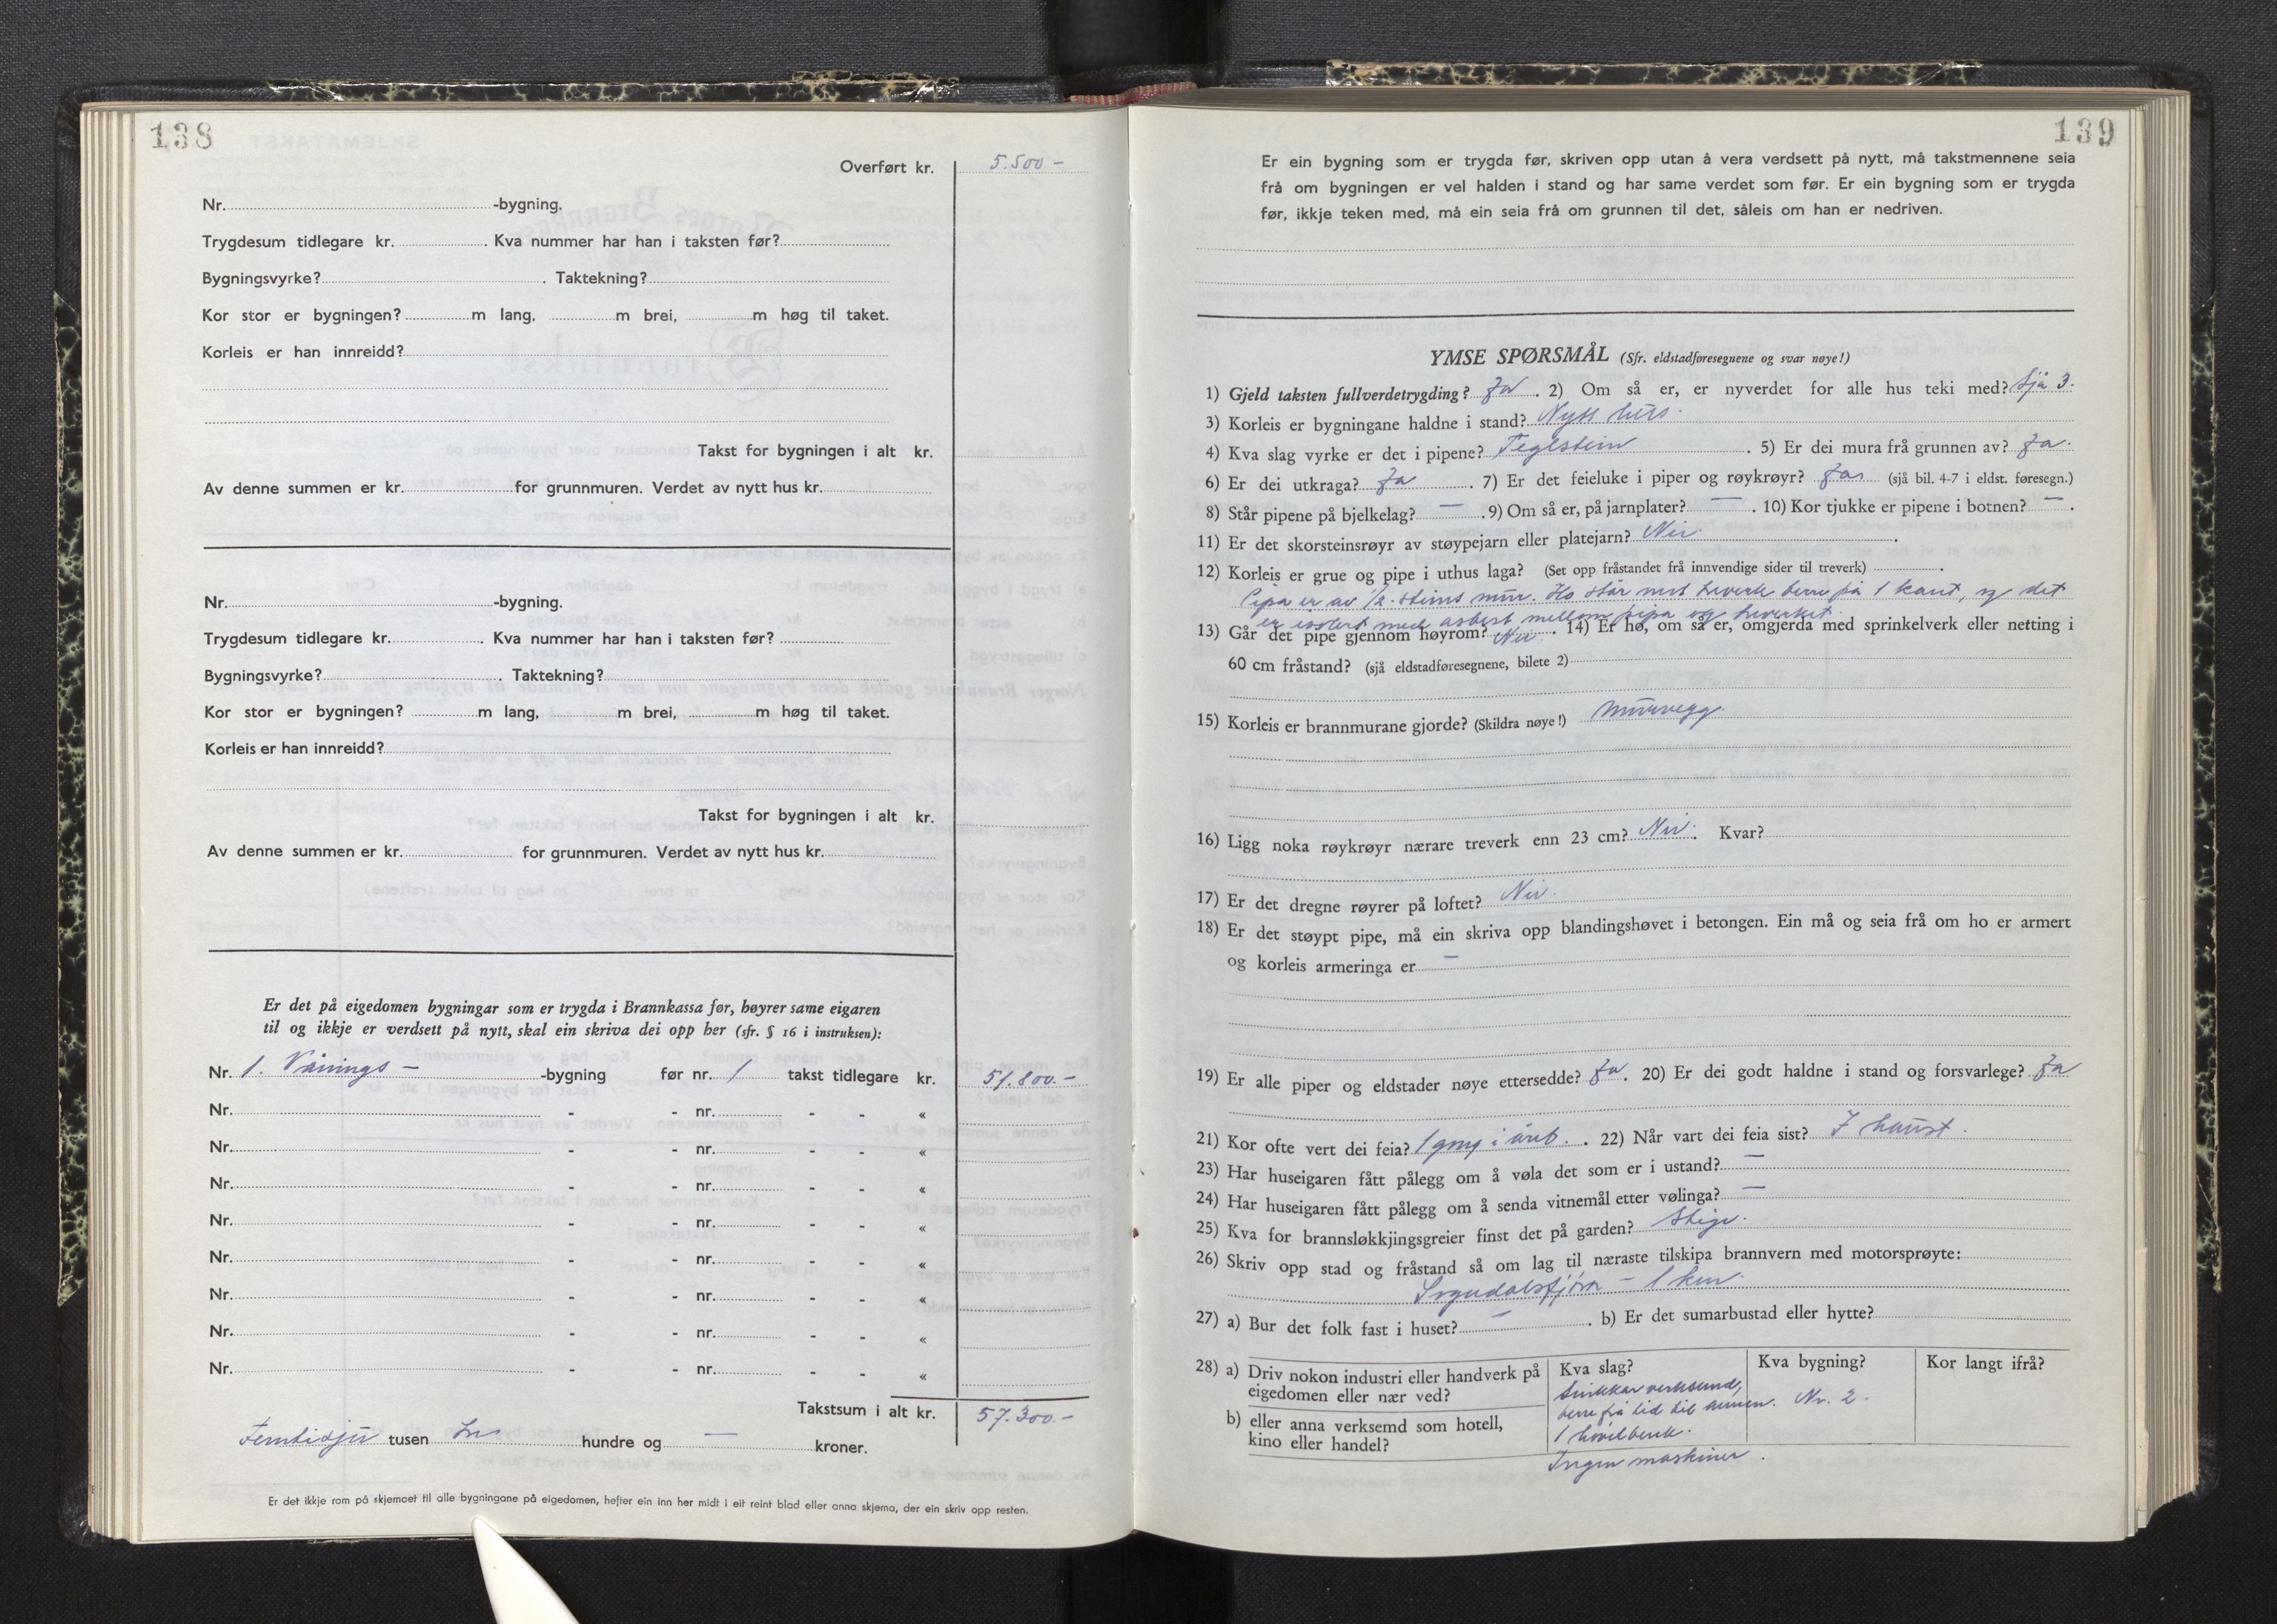 138
Overført kr. 5.500.-
Nr. -bygning.
Trygdesum tidlegare kr. . Kva nummer har han i taksten før?
Bygningsvyrke? . Taktekning?
Kor stor er bygningen? m lang, m brei, m høg til taket.
Korleis er han innreidd?
Takst for bygningen i alt kr.
Av denne summen er kr. for grunnmuren. Verdet av nytt hus kr.
Nr. -bygning.
Trygdesum tidlegare kr. . Kva nummer har han i taksten før?
Bygningsvyrke? . Taktekning?
Kor stor er bygningen? m lang, m brei, m høg til taket.
Korleis er han innreidd?
Takst for bygningen i alt kr.
Av denne summen er kr. for grunnmuren. Verdet av nytt hus kr.
Er det på eigedomen bygningar som er trygda i Brannkassa før, høyrer same eigaren
til og ikkje er verdsett på nytt, skal ein skriva dei opp her (sfr. § 16 i instruksen):
Nr. 1. Vånings - -bygning før nr. 1 takst tidlegare kr. 51.800.-
Nr. - - nr. - - «
Nr. - - nr. - - «
Nr. - - nr. - - «
Nr. - - nr. - - «
Nr. - - nr. - - «
Nr. - - nr. - - «
Nr. - - nr. - - «
Nr. - - nr. - - «
Takstsum i alt kr. 57.300.-
Femtisju tusen tre hundre og — kroner.
Er det ikkje rom på skjemaet til alle bygningane på eigedomen, hefter ein inn her midt i eit reint blad eller anna skjema, der ein skriv opp resten.
139
Er ein bygning som er trygda før, skriven opp utan å vera verdsett på nytt, må takstmennene seia
frå om bygningen er vel halden i stand og har same verdet som før. Er ein bygning som er trygda
før, ikkje teken med, må ein seia frå om grunnen til det, såleis om han er nedriven.
YMSE SPØRSMÅL (Sfr. eldstadføresegnene og svar nøye!)
1) Gjeld taksten fullverdetrygding? Ja . 2) Om så er, er nyverdet for alle hus teki med? Sjå 3.
3) Korleis er bygningane haldne i stand? Nytt hus.
4) Kva slag vyrke er det i pipene? Teglstein . 5) Er dei mura frå grunnen av? Ja.
6) Er dei utkraga? Ja . 7) Er det feieluke i piper og røykrøyr? Ja (sjå bil. 4-7 i eldst. føresegn.)
8) Står pipene på bjelkelag? — . 9) Om så er, på jarnplater? — . 10) Kor tjukke er pipene i botnen? — .
11) Er det skorsteinsrøyr av støypejarn eller platejarn? Nei .
12) Korleis er grue og pipe i uthus laga? (Set opp fråstandet frå innvendige sider til treverk) .
Pipa er av 1/2-steins mur. Ho står mot treverk berre på 1 kant, og det
er isolert med asbest mellom pipa og treverket.
13) Går det pipe gjennom høyrom? Nei . 14) Er ho, om så er, omgjerda med sprinkelverk eller netting i
60 cm fråstand? (sjå eldstadføresegnene, bilete 2)
15) Korleis er brannmurane gjorde? (Skildra nøye!) Murvegg.
16) Ligg noka røykrøyr nærare treverk enn 23 cm? Nei. Kvar?
17) Er det dregne røyrer på loftet? Nei.
18) Er det støypt pipe, må ein skriva opp blandingshøvet i betongen. Ein må og seia frå om ho er armert
og korleis armeringa er —
19) Er alle piper og eldstader nøye ettersedde? Ja . 20) Er dei godt haldne i stand og forsvarlege? Ja
21) Kor ofte vert dei feia? 1 gong i året. . 22) Når vart dei feia sist? I haust.
23) Har huseigaren fått pålegg om å vøla det som er i ustand? —
24) Har huseigaren fått pålegg om å senda vitnemål etter vølinga? —
25) Kva for brannsløkkjingsgreier finst det på garden? Stige.
26) Skriv opp stad og fråstand så om lag til næraste tilskipa brannvern med motorsprøyte:
Sogndalsfjøra - 1 km.
27) a) Bur det folk fast i huset? — . b) Er det sumarbustad eller hytte?
28) a) Driv nokon industri eller handverk på eigedomen eller nær ved?
b) eller anna verksemd som hotell, kino eller handel?
Kva slag? Kva bygning? Kor langt ifrå?
Snikkarverksemd,
berre frå tid til annen. Nr. 2.
1 høvelbenk.
Ingen maskiner.